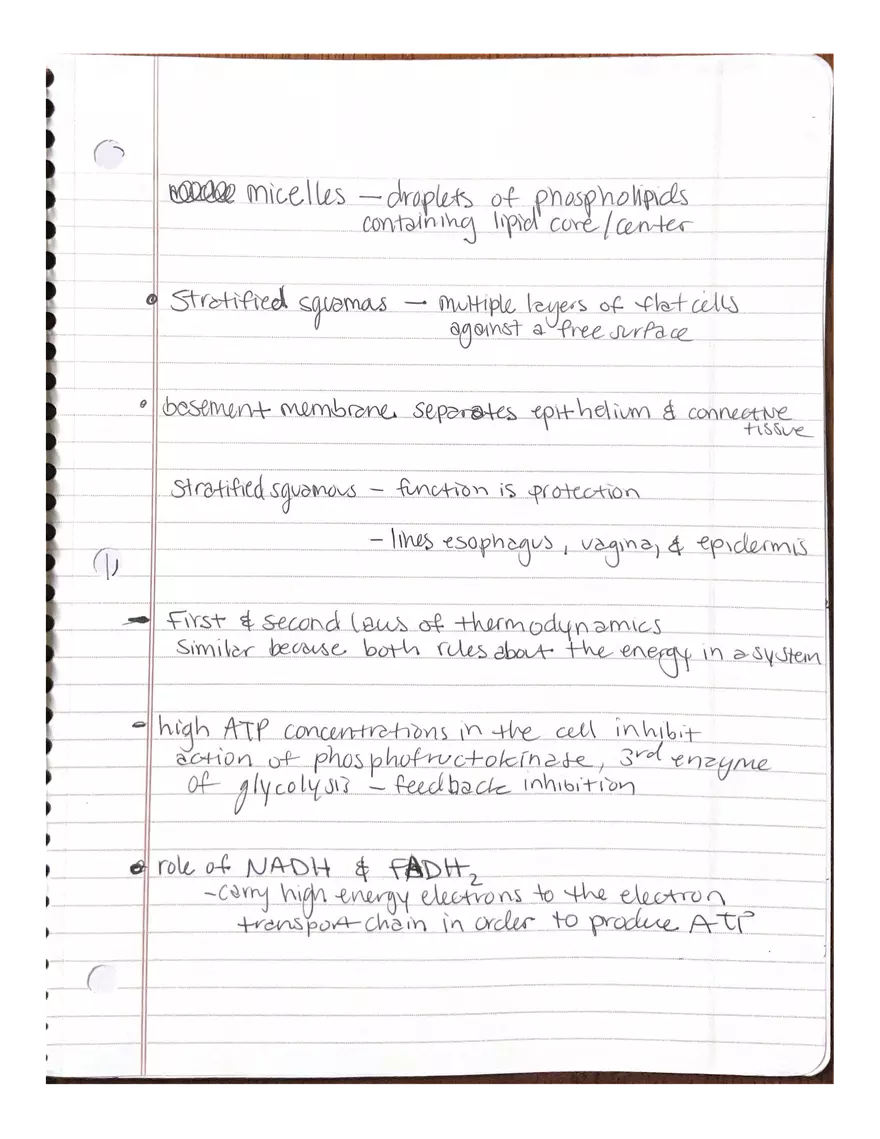 micelles – droplets of phospholipids
containing lipid core/center
• Stratified squamas – multiple layers of flat cells
against a free surface
• basement membrane separates epithelium & connective
tissue
Stratified squamous – function is protection
– lines esophagus, vagina, & epidermis
– First & second laws of thermodynamics
Similar because both rules about the energy in a system
– high ATP concentrations in the cell inhibit
action of phosphofructokinase, 3rd enzyme
of glycolysis – feedback inhibition
• role of NADH & FADH₂
– carry high energy electrons to the electron
transport chain in order to produce ATP